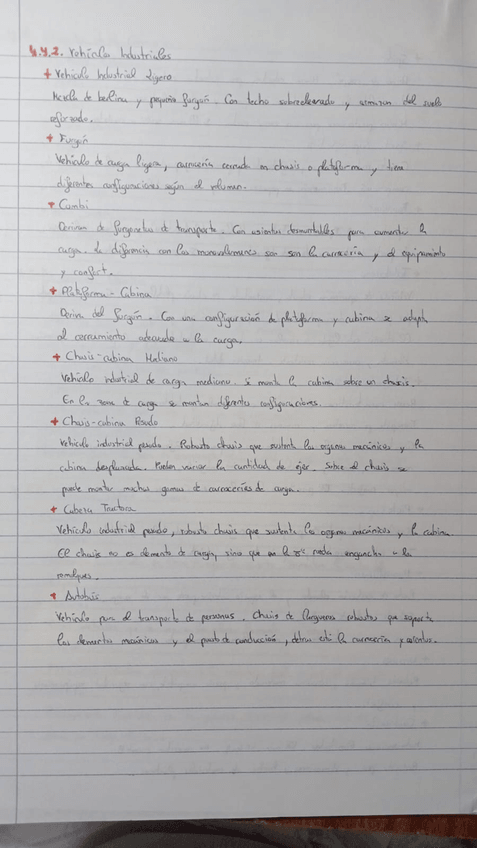 4.4.2. Vehículos Industriales
+ Vehículo Industrial Ligero
Mezcla de berlina y pequeño furgón. Con techo sobreelevado y del suelo
reforzado.
+ Furgón
Vehículo de carga ligera, carrocería cerrada en chasis o plataforma y tiene
diferentes configuraciones según el volumen.
+ Combi
Derivan de furgonetas de transporte. Con asientos desmontables para aumentar la
carga. la diferencia con los monovolumenes son son la carrocería y el equipamiento
y confort.
+ Plataforma - Cabina
Deriva del furgón. Con una configuración de plataforma y cabina se adapta
el carrozamiento adecuado a la carga.
+ Chasis-cabina Mediano
Vehículo industrial de carga mediano. si monta la cabina sobre un chasis.
En la zona de carga se montan diferentes configuraciones.
+ Chasis-cabina Pesado
Vehículo industrial pesado. Robusto chasis que sustenta los organos mecánicos y la
cabina desplazada. Pueden variar la cantidad de ejes. Sobre el chasis se
puede montar muchas gamas de carrocerías de carga.
+ Cabeza Tractora
Vehículo industrial pesado, robusto chasis que sustenta los organos mecánicos y la cabina.
El chasis no es elemento de carga, sino que en la rueda engancha a los
remolques.
+ Autobús
Vehículo para el transporte de personas. Chasis de largueros robustos que soporta
los elementos mecánicos y el puesto de conducción, detras está la carrocería y asientos.